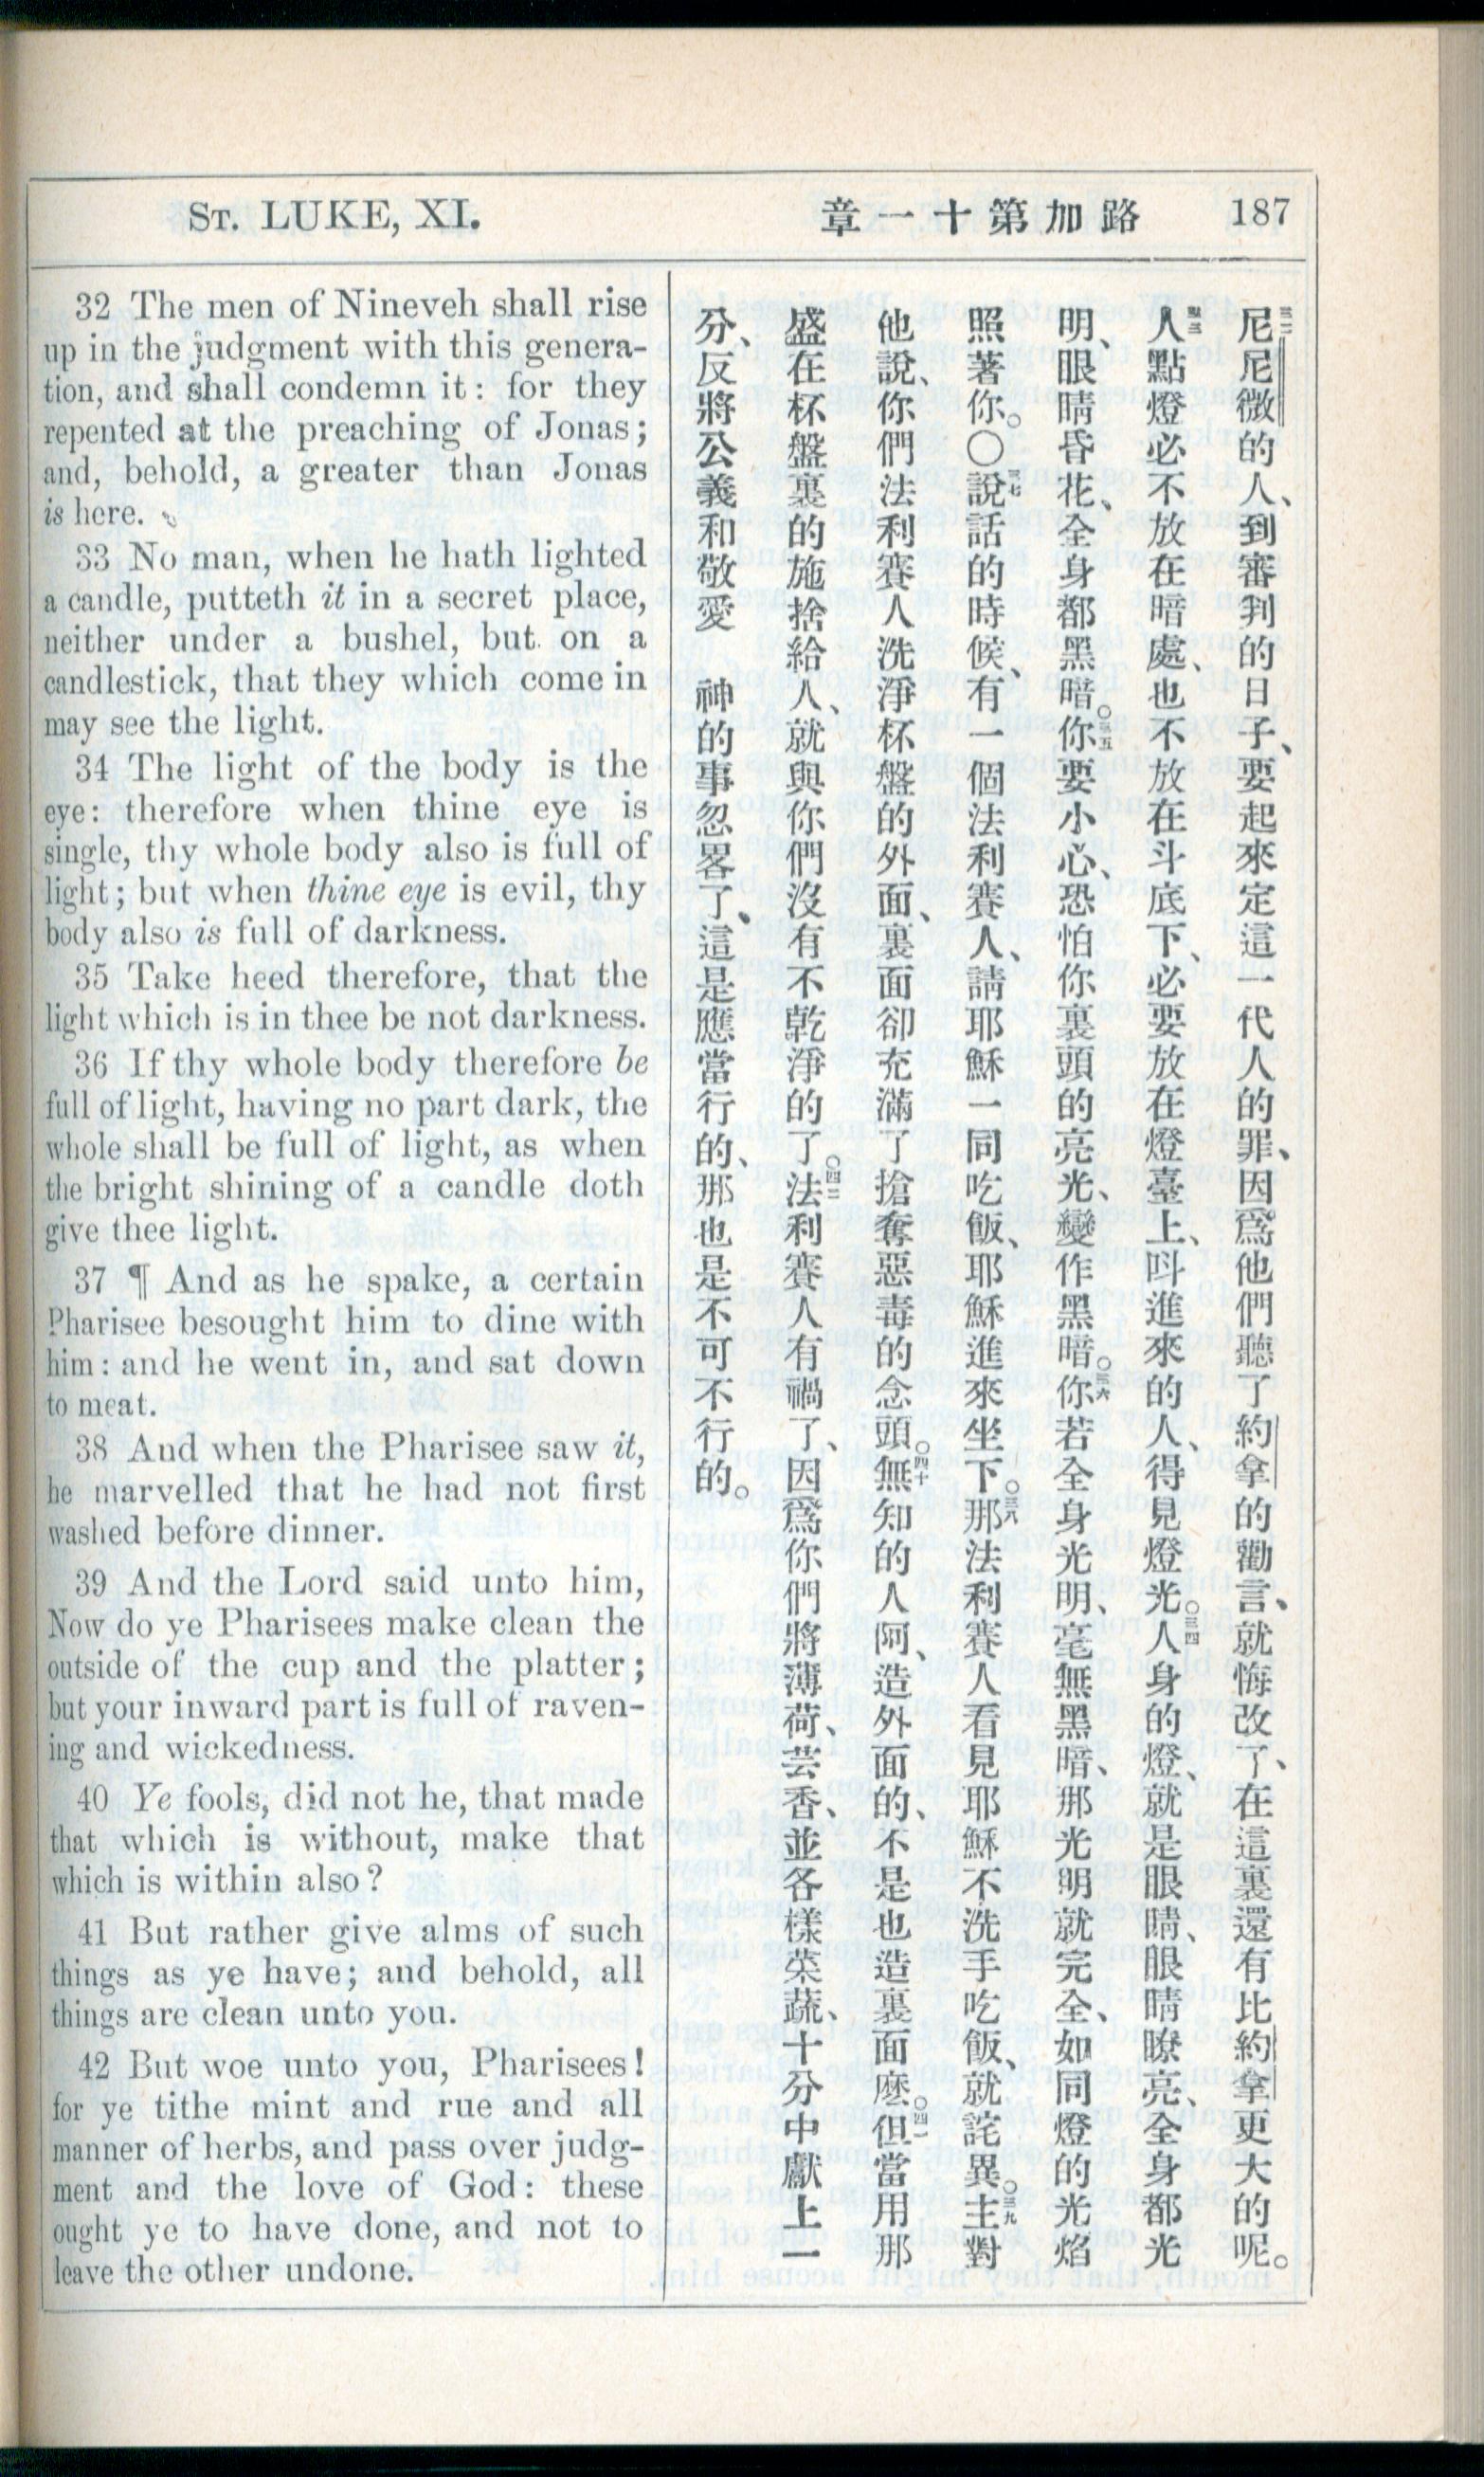 St. LUKE, XI.
章一十第加路
187
32 The men of Nineveh shall rise
up in the judgment with this genera-
tion, and shall condemn it: for they
repented at the preaching of Jonas;
and, behold, a greater than Jonas
is here.
33 No man, when he hath lighted
a candle, putteth it in a secret place,
neither under a bushel, but on a
candlestick, that they which come in
may see the light.
34 The light of the body is the
eye: therefore when thine eye is
single, thy whole body also is full of
light; but when thine eye is evil, thy
body also is full of darkness.
35 Take heed therefore, that the
light which is in thee be not darkness.
36 If thy whole body therefore be
full of light, having no part dark, the
whole shall be full of light, as when
the bright shining of a candle doth
give thee light.
37 ¶ And as he spake, a certain
Pharisee besought him to dine with
him: and he went in, and sat down
to meat.
38 And when the Pharisee saw it,
he marvelled that he had not first
washed before dinner.
39 And the Lord said unto him,
Now do ye Pharisees make clean the
outside of the cup and the platter;
but your inward part is full of raven-
ing and wickedness.
40 Ye fools, did not he, that made
that which is without, make that
which is within also?
41 But rather give alms of such
things as ye have; and behold, all
things are clean unto you.
42 But woe unto you, Pharisees!
for ye tithe mint and rue and all
manner of herbs, and pass over judg-
ment and the love of God: these
ought ye to have done, and not to
leave the other undone.
三二尼尼微的人、到審判的日子、要起來定這一代人的罪、因爲他們聽了約拿的勸言、就悔改了、在這裏還有比約拿更大的呢。
三三人點燈必不放在暗處、也不放在斗底下、必要放在燈臺上、呌進來的人、得見燈光。三四人身的燈、就是眼睛、眼睛瞭亮、全身都光
明、眼睛昏花、全身都黑暗。三五你要小心、恐怕你裏頭的亮光、變作黑暗。三六你若全身光明、毫無黑暗、那光明就完全、如同燈的光焰
照著你。〇三七說話的時候、有一個法利賽人、請耶穌一同吃飯、耶穌進來坐下。三八那法利賽人看見耶穌不洗手吃飯、就詫異。三九主對
他說、你們法利賽人洗淨杯盤的外面、裏面卻充滿了搶奪惡毒的念頭。四十無知的人阿、造外面的、不是也造裏面麽。四一但當用那
盛在杯盤裏的施捨給人、就與你們沒有不乾淨的了。四二法利賽人有禍了、因爲你們將薄荷、芸香、並各樣菜蔬、十分中獻上一
分、反將公義和敬愛 神的事忽畧了、這是應當行的、那也是不可不行的。